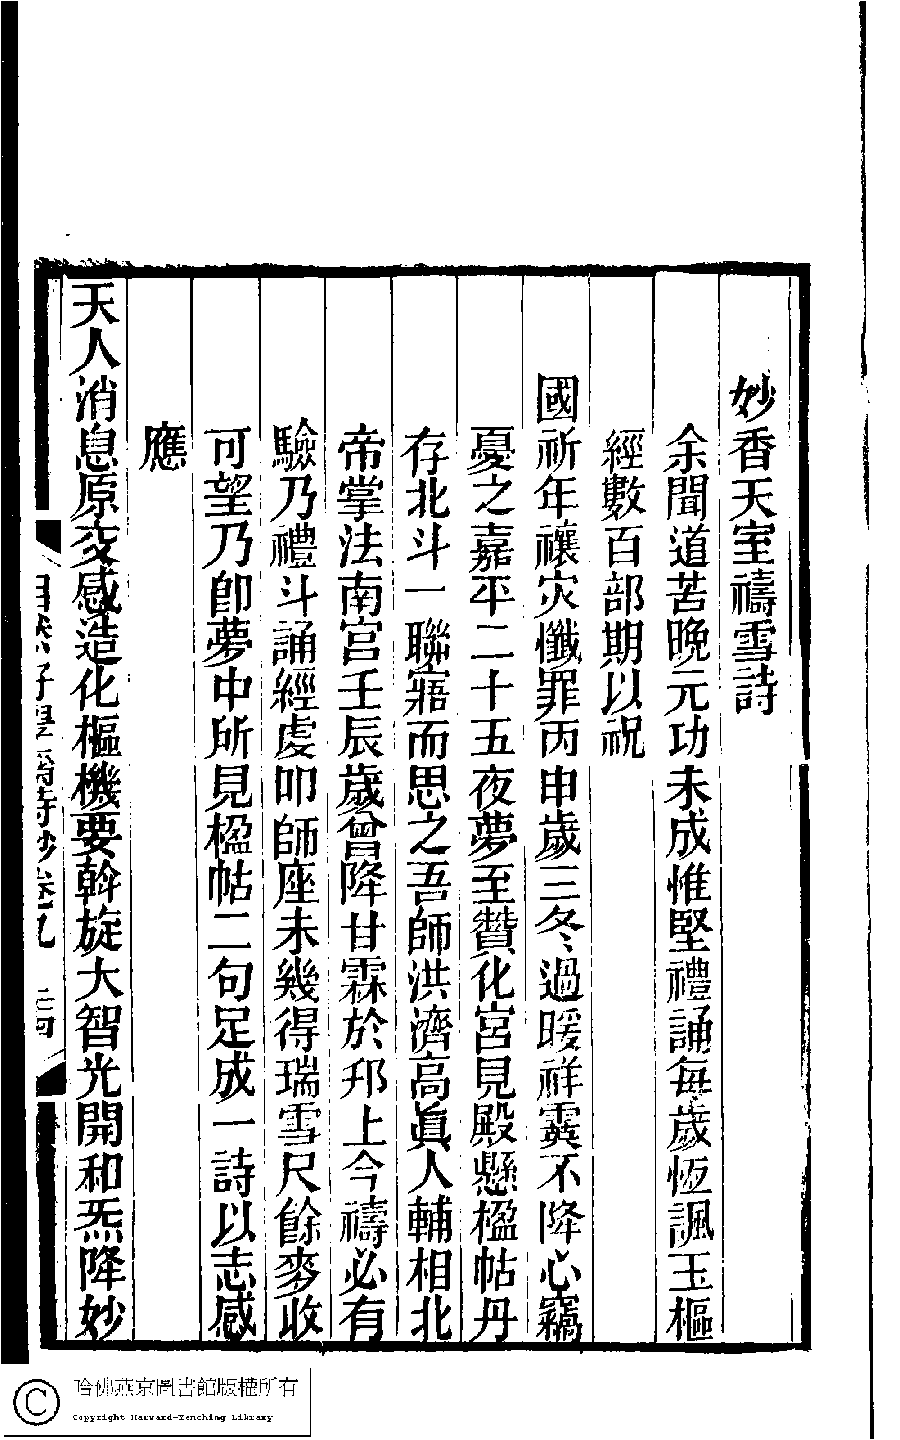 妙香天室禱雪詩
余聞道苦晚元功未成惟堅禮誦每歲恆諷玉樞
經數百部期以祝
國祈年禳灾懺罪丙申歲三冬過暖祥霙不降心竊
憂之嘉平二十五夜夢至贊化宮見殿懸楹帖丹
存北斗一聯寤而思之吾師洪濟高眞人輔相北
帝掌法南宮壬辰歲曾降甘霖於邦上今禱必有
驗乃禮斗誦經虔叩師座未幾得瑞雪尺餘麥收
可望乃卽夢中所見楹帖二句足成一詩以志感
應
天人消息原交感造化樞機要斡旋大智光開和炁降妙
自然好學齋詩鈔卷九
哈佛燕京圖書館版權所有
Copyright Harvard-Yenching Library